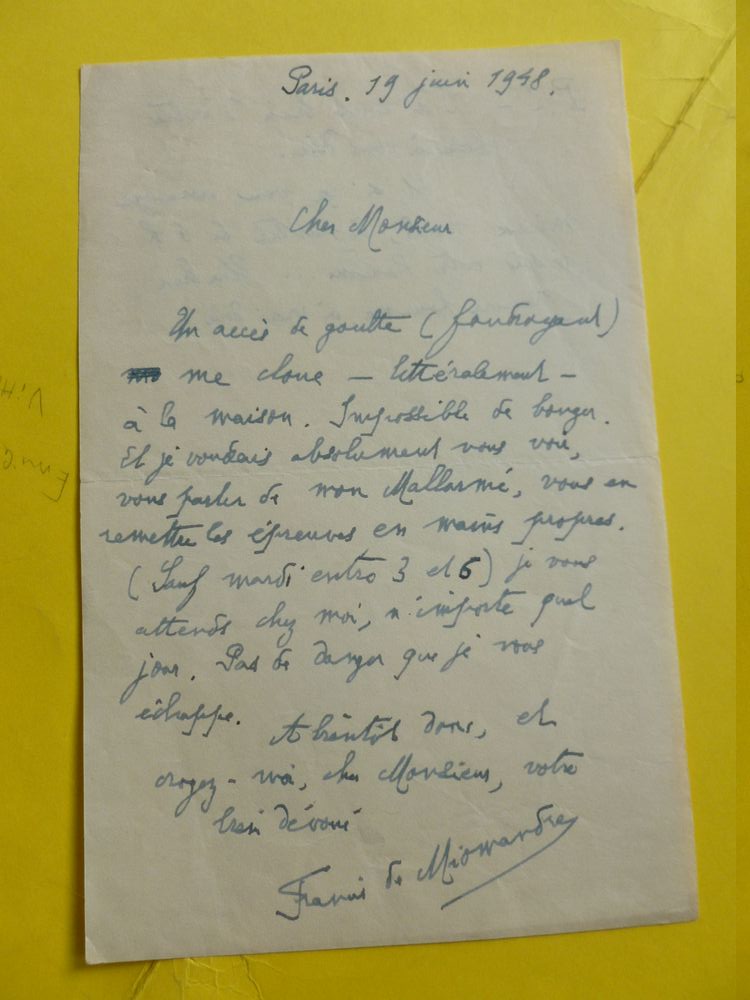 Paris. 19 juin 1948.
Cher Monsieur
Un accès de goutte (foudroyant)
me cloue — littéralement —
à la maison. Impossible de bouger.
Et je voudrais absolument vous voir,
vous parler de mon Mallarmé, vous en
remettre les épreuves en mains propres.
(Sauf mardi entre 3 et 6) je vous
attends chez moi, n'importe quel
jour. Pas de danger que je vous
échappe.
A bientôt donc, et
croyez-moi, cher Monsieur, votre
bien dévoué
Francis de Miomandre